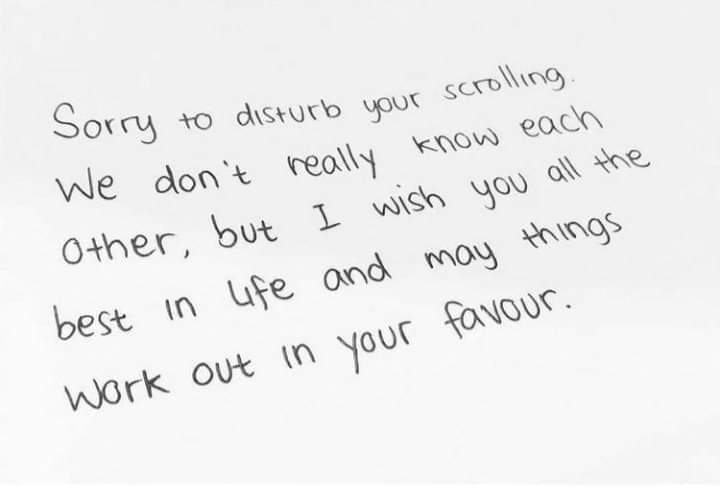 Sorry to disturb your scrolling.
We don't really know each
other, but I wish you all the
best in life and may things
work out in your favour.